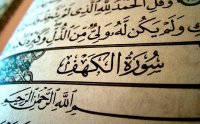 وَقُلِ الْحَمْدُ لِلَّهِ الَّذِي لَمْ
وَلَمْ يَكُن لَّهُ وَلِيٌّ مِّنَ الذُّلِّ
سُورَةُ الْكَهْفِ
اللَّهِ الرَّحْمَٰنِ الرَّحِيمِ